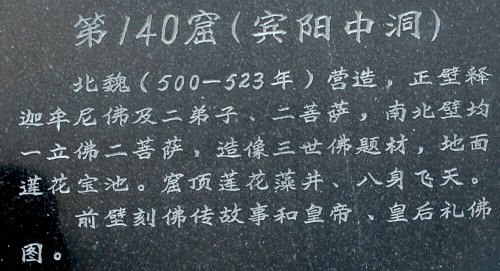 第140窟(宾阳中洞)
北魏(500—523年)营造，正壁释
迦牟尼佛及二弟子、二菩萨，南北壁均
一立佛二菩萨，造像三世佛题材，地面
莲花宝池。窟顶莲花藻井、八身飞天。
前壁刻佛传故事和皇帝、皇后礼佛
图。